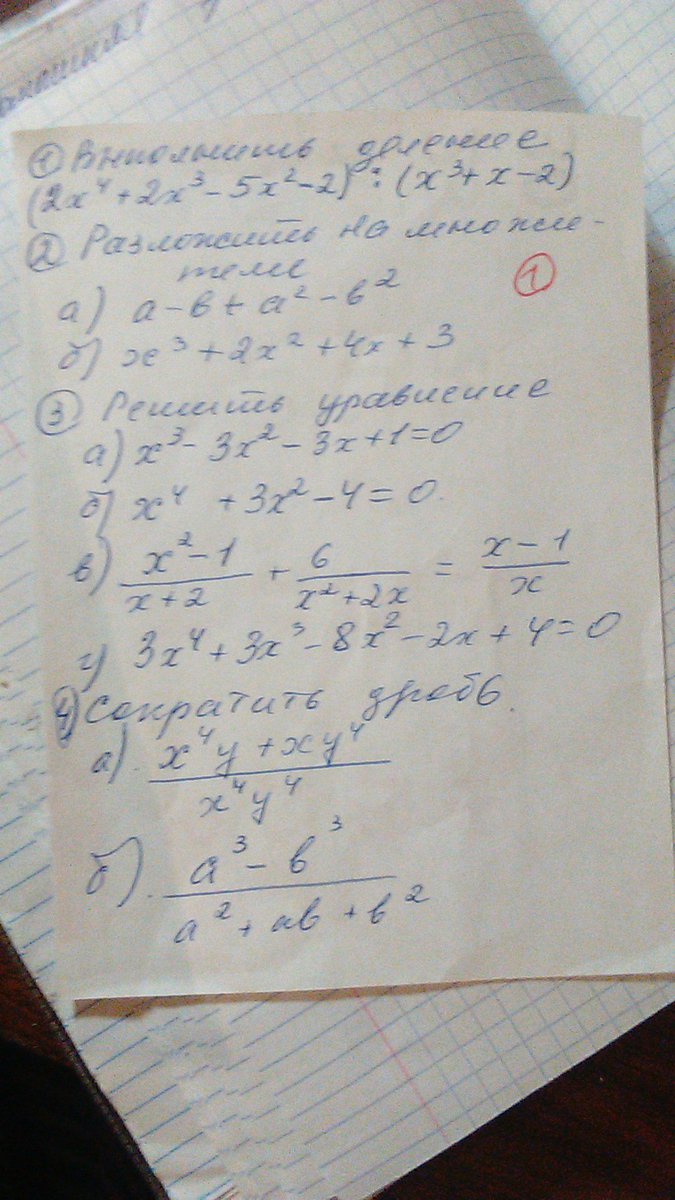 ① Выполнить деление
(2x⁴+2x³-5x²-2):(x³+x-2)
② Разложить на множи-
тели
①
а) a-в+a²-в²
б) x³+2x²+4x+3
③ Решить уравнение
а) x³-3x²-3x+1=0
б) x⁴ +3x²-4=0.
в) (x²-1)/(x+2) + 6/(x²+2x) = (x-1)/x
г) 3x⁴+3x³-8x²-2x+4=0
④ Сократить дробь.
а). (x⁴y+xy⁴)/(x⁴y⁴)
б). (a³-в³)/(a²+aв+в²)